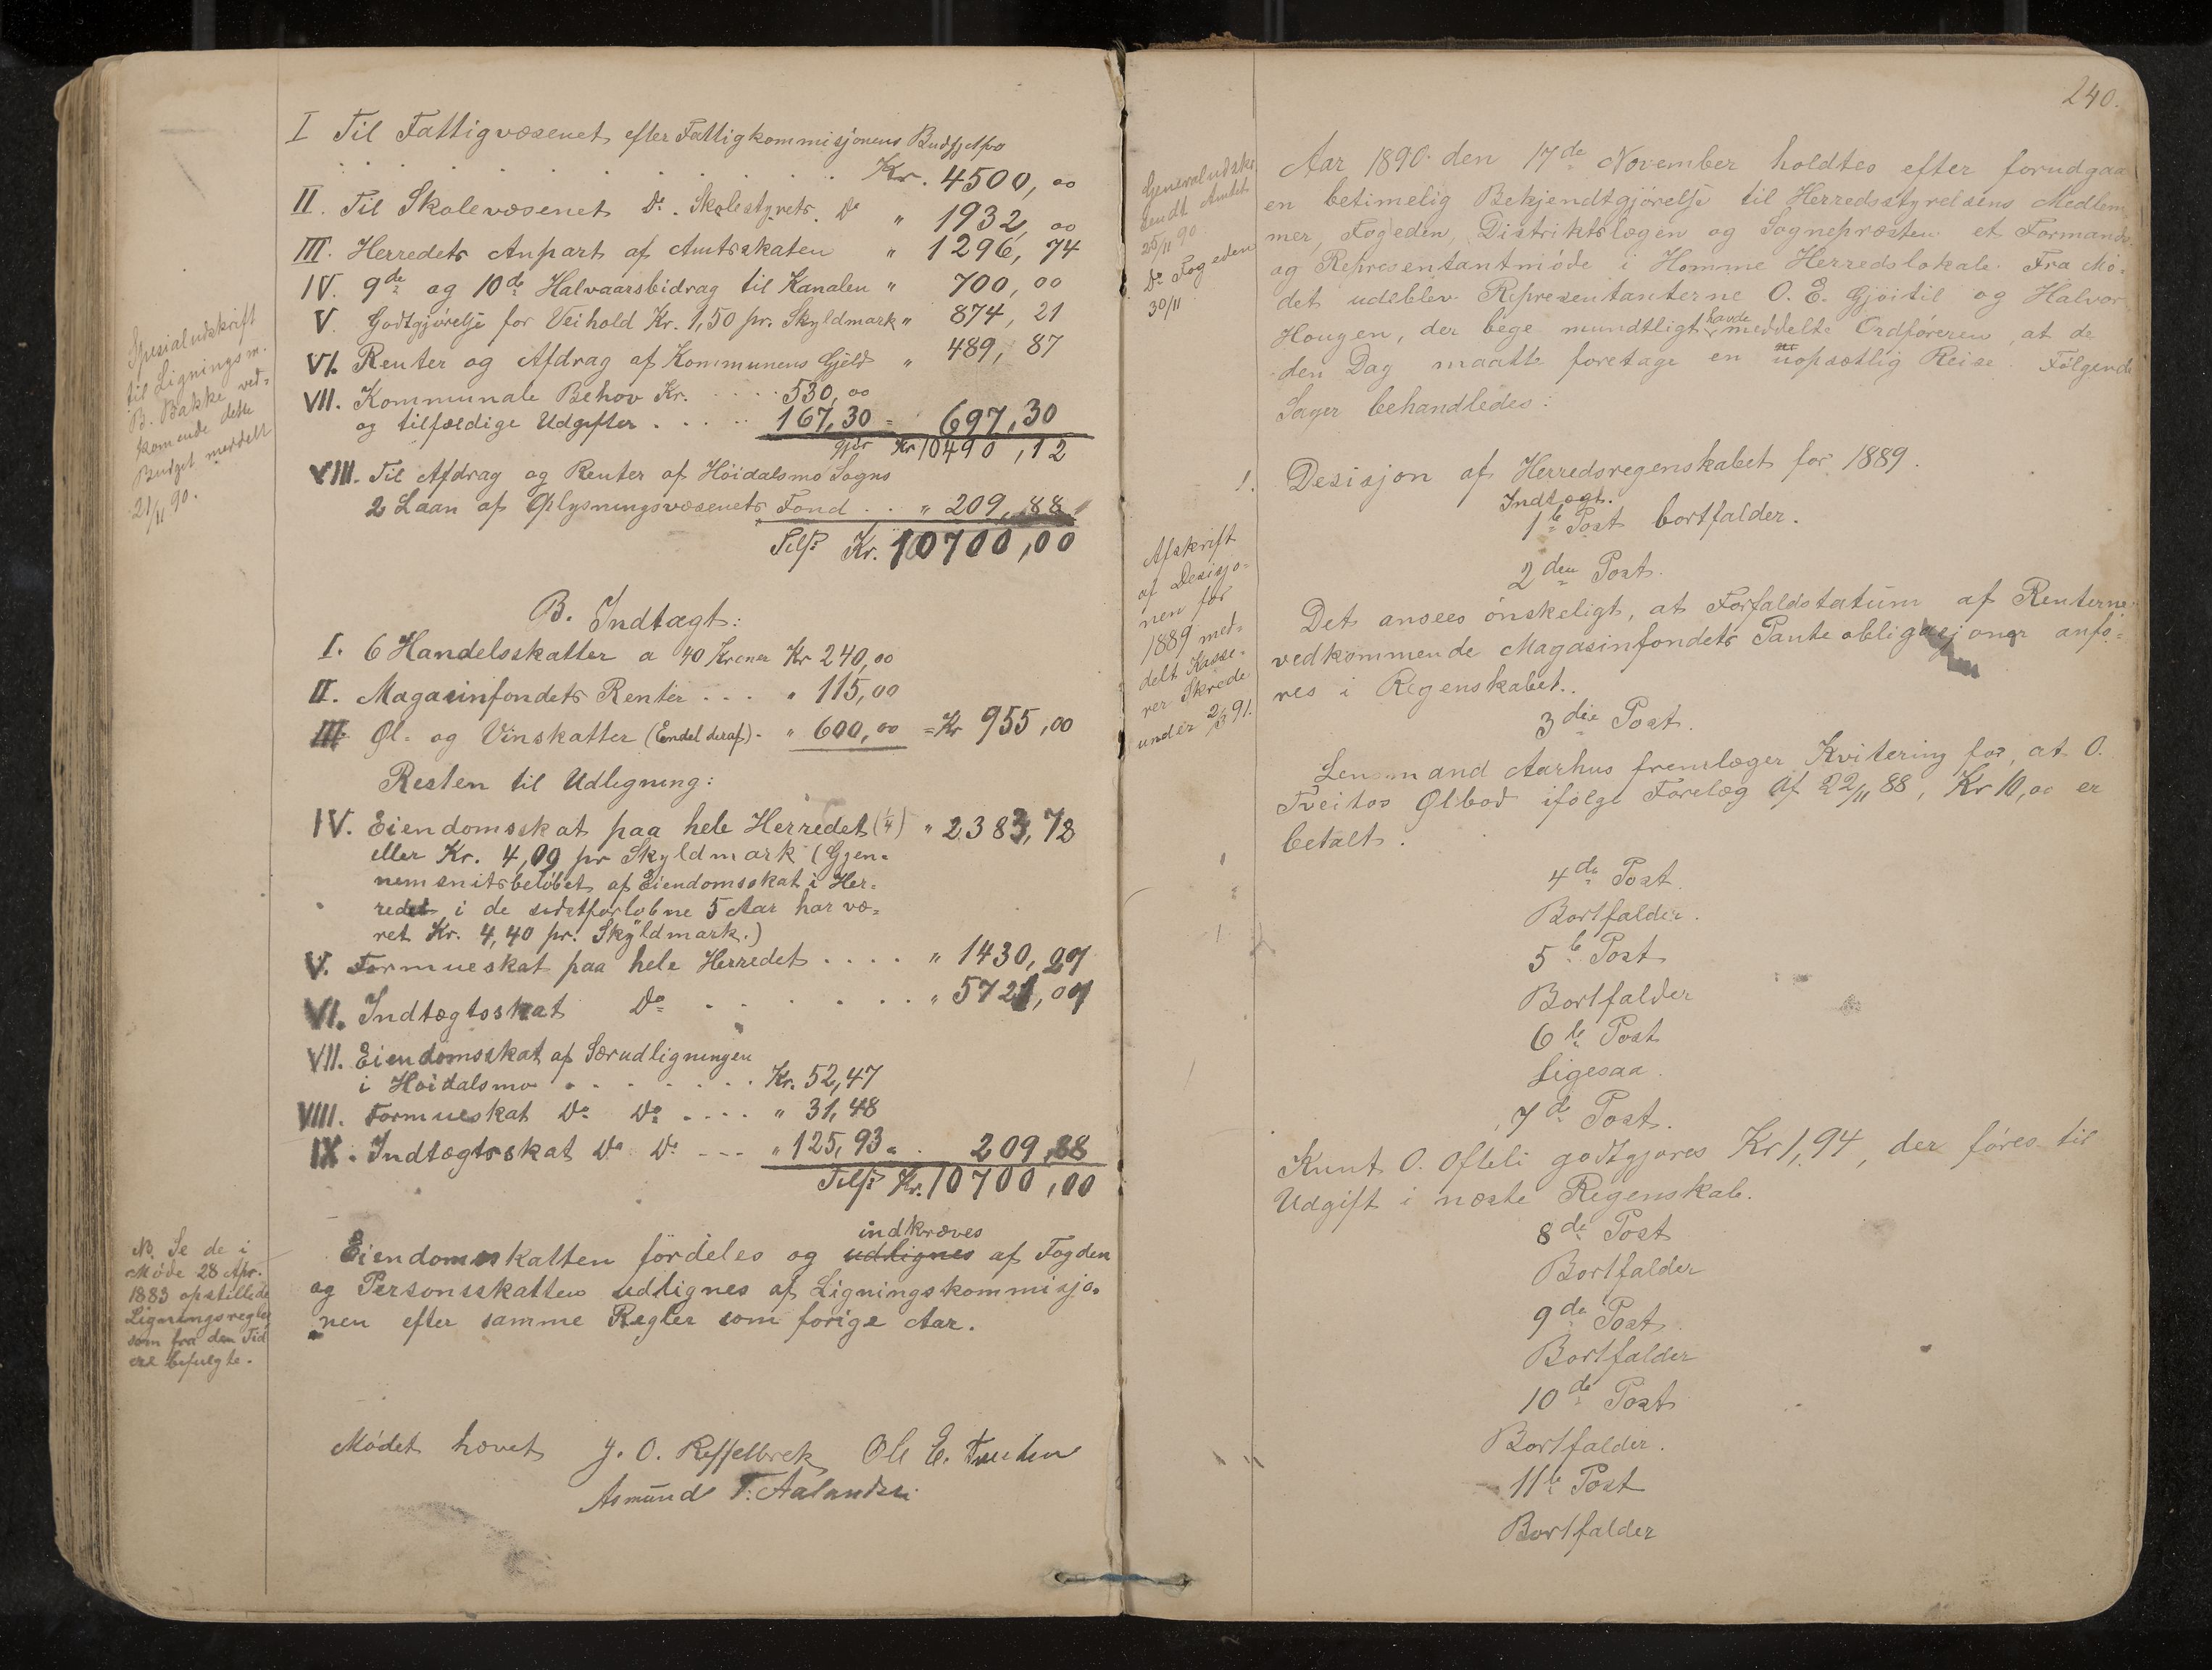 I Til Fattigvæsenet efter Fattigkommisjonens Budgjetpro
Kr. 4500,00
II. Til Skolevæsenet Do. Skolestyrets Do " 1932,00
III. Herredets Anpart af Amtsskaten " 1296,74
IV. 9de og 10de Halvaarsbidrag til Kanalen " 700,00
V. Godtgjørelse for Veihold Kr. 1,50 pr. Skyldmark " 874,21
VI. Renter og Afdrag af Kommunens Gjeld " 489,87
VII. Kommunale Behov Kr. . . . . 530,00
og tilfældige Udgifter . . . . . 167,30 = 697,30
gjør Kr 10490,12
VIII. Til Afdrag og Renter af Høidalsmo Sogns
2 Laan af Oplysningsvæsenets Fond . . " 209,88
Tils: Kr. 10700,00
B. Indtægt:
I. 6 Handelsskatter a 40 Kroner Kr 240,00
II. Magasinfondets Renter . . . " 115,00
III. Øl- og Vinskatter (Endel deraf) - " 600,00 = Kr 955,00
Resten til Udligning:
IV. Eiendomsskat paa hele Herredet (1/4) " 2383,78
eller Kr. 4,09 pr Skyldmark (Gjen-
nemsnitsbeløbet af Eiendomsskat i Her-
redet i de sidstforløbne 5 Aar har væ-
ret Kr. 4,40 pr. Skyldmark.)
V. Formueskat paa hele Herredet . . . . " 1430,27
VI. Indtægtsskat Do - . . . . . . " 5721,07
VII. Eiendomsskat af Særudligningen
i Høidalsmo . . . . . . . . Kr. 52,47
VIII. Formueskat Do Do . . . . " 31,48
IX. Indtægtsskat Do Do - - - " 125,93 = . 209,88
Tils: Kr. 10700,00
indkræves
Eiendomsskatten fördeles og udlignes af Fogden
og Personsskatten udlignes af Ligningskommisjo-
nen efter samme Regler som forige Aar.
Mødet hævet J. O. Reffelbrek Ole E.
Asmund T. Aalandsli
Spesialudskrift
til Ligningsm.
B. Bakke ved-
komende dette
Budget meddelt
21/11 90.
NB. Se de i
Møde 28 Apr.
1883 opstillede
Ligningsregler
som fra den Tid
ere befulgte.
240.
Aar 1890 den 17de November holdtes efter forudgaa
en betimelig Bekjendtgjørelse til Herredsstyrelsens Medlem-
mer, Fogeden, Distriktslægen og Sognepræsten et Formands-
og Representantmøde i Homme Herredslokale. Fra Mø-
det udeblev Representanterne O. E. Gjøitil og Halvor
Hougen, der bege mundtligt havde meddelte Ordføreren, at de
den Dag maatte foretage en uopsætlig Reise. Følgende
Sager behandledes:
1. Desisjon af Herredsregenskabet for 1889.
Indtægt.
1te Post bortfalder.
2den Post.
Det ansees ønskeligt, at Forfaldstatum af Renterne
vedkommende Magasinfondets Panteobligasjoner anfø-
res i Regenskabet.
3die Post.
Lensmand Aarhus fremlæger Kvitering for, at O.
Tveitos Ølbod ifølge Forelæg af 22/11 88, Kr 10,00 er
betalt.
4de Post.
Bortfalder.
5te Post
Bortfalder
6te Post
Ligesaa.
7de Post.
Knut O. Ofteli godtgjøres Kr 1,94, der føres til
Udgift i næste Regenskab.
8de Post
Bortfalder
9de Post.
Bortfalder
10de Post
Bortfalder.
11te Post
Bortfalder
Generaludskr
sendt Amtet
25/11 90.
Do Fogeden
30/11
Afskrift
af Desisjo-
nen for
1889 med-
delt Kasse-
rer Skrede
under 2/3 91.